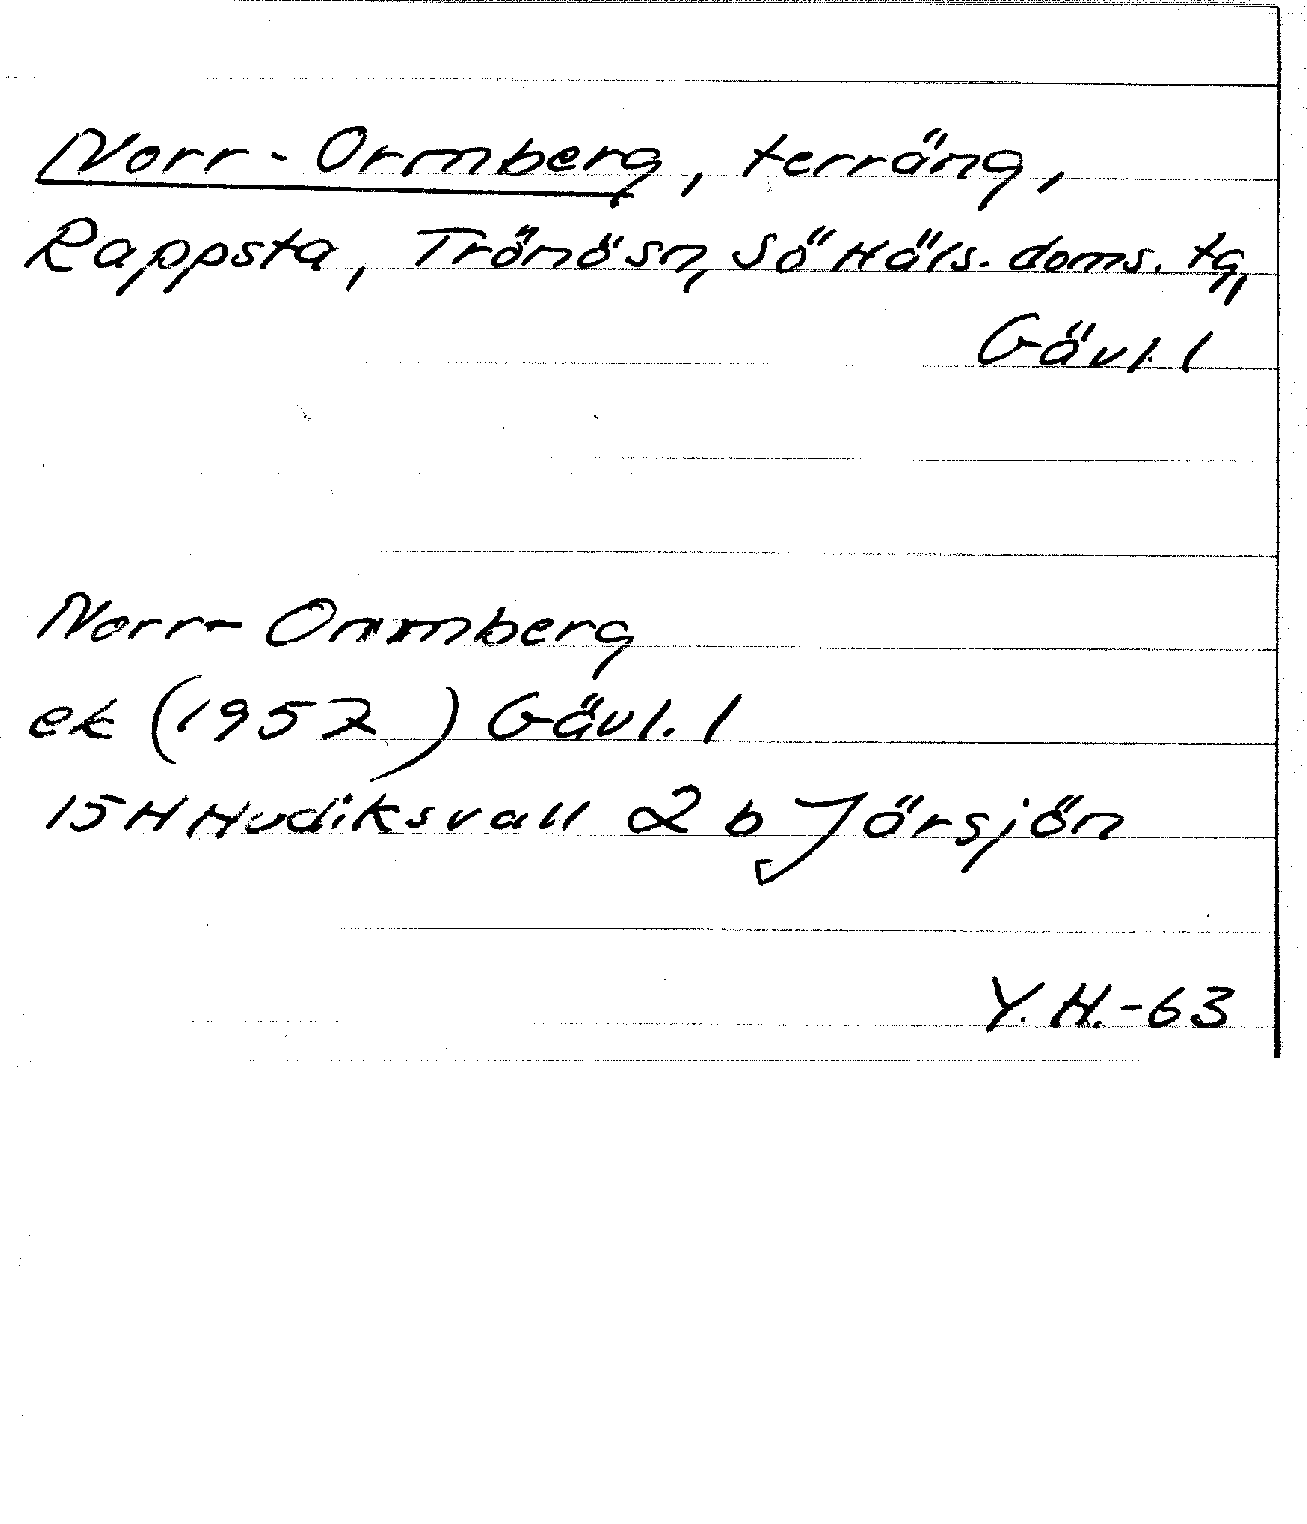 Norr-Ormberg, terräng,
Rappsta, Trönö sn, Sö Häls. doms. tg,
Gävl. l
Norr-Ormberg
ek (1957) Gävl. l
15H Hudiksvall 2 b Jörsjön
Y.H.-63